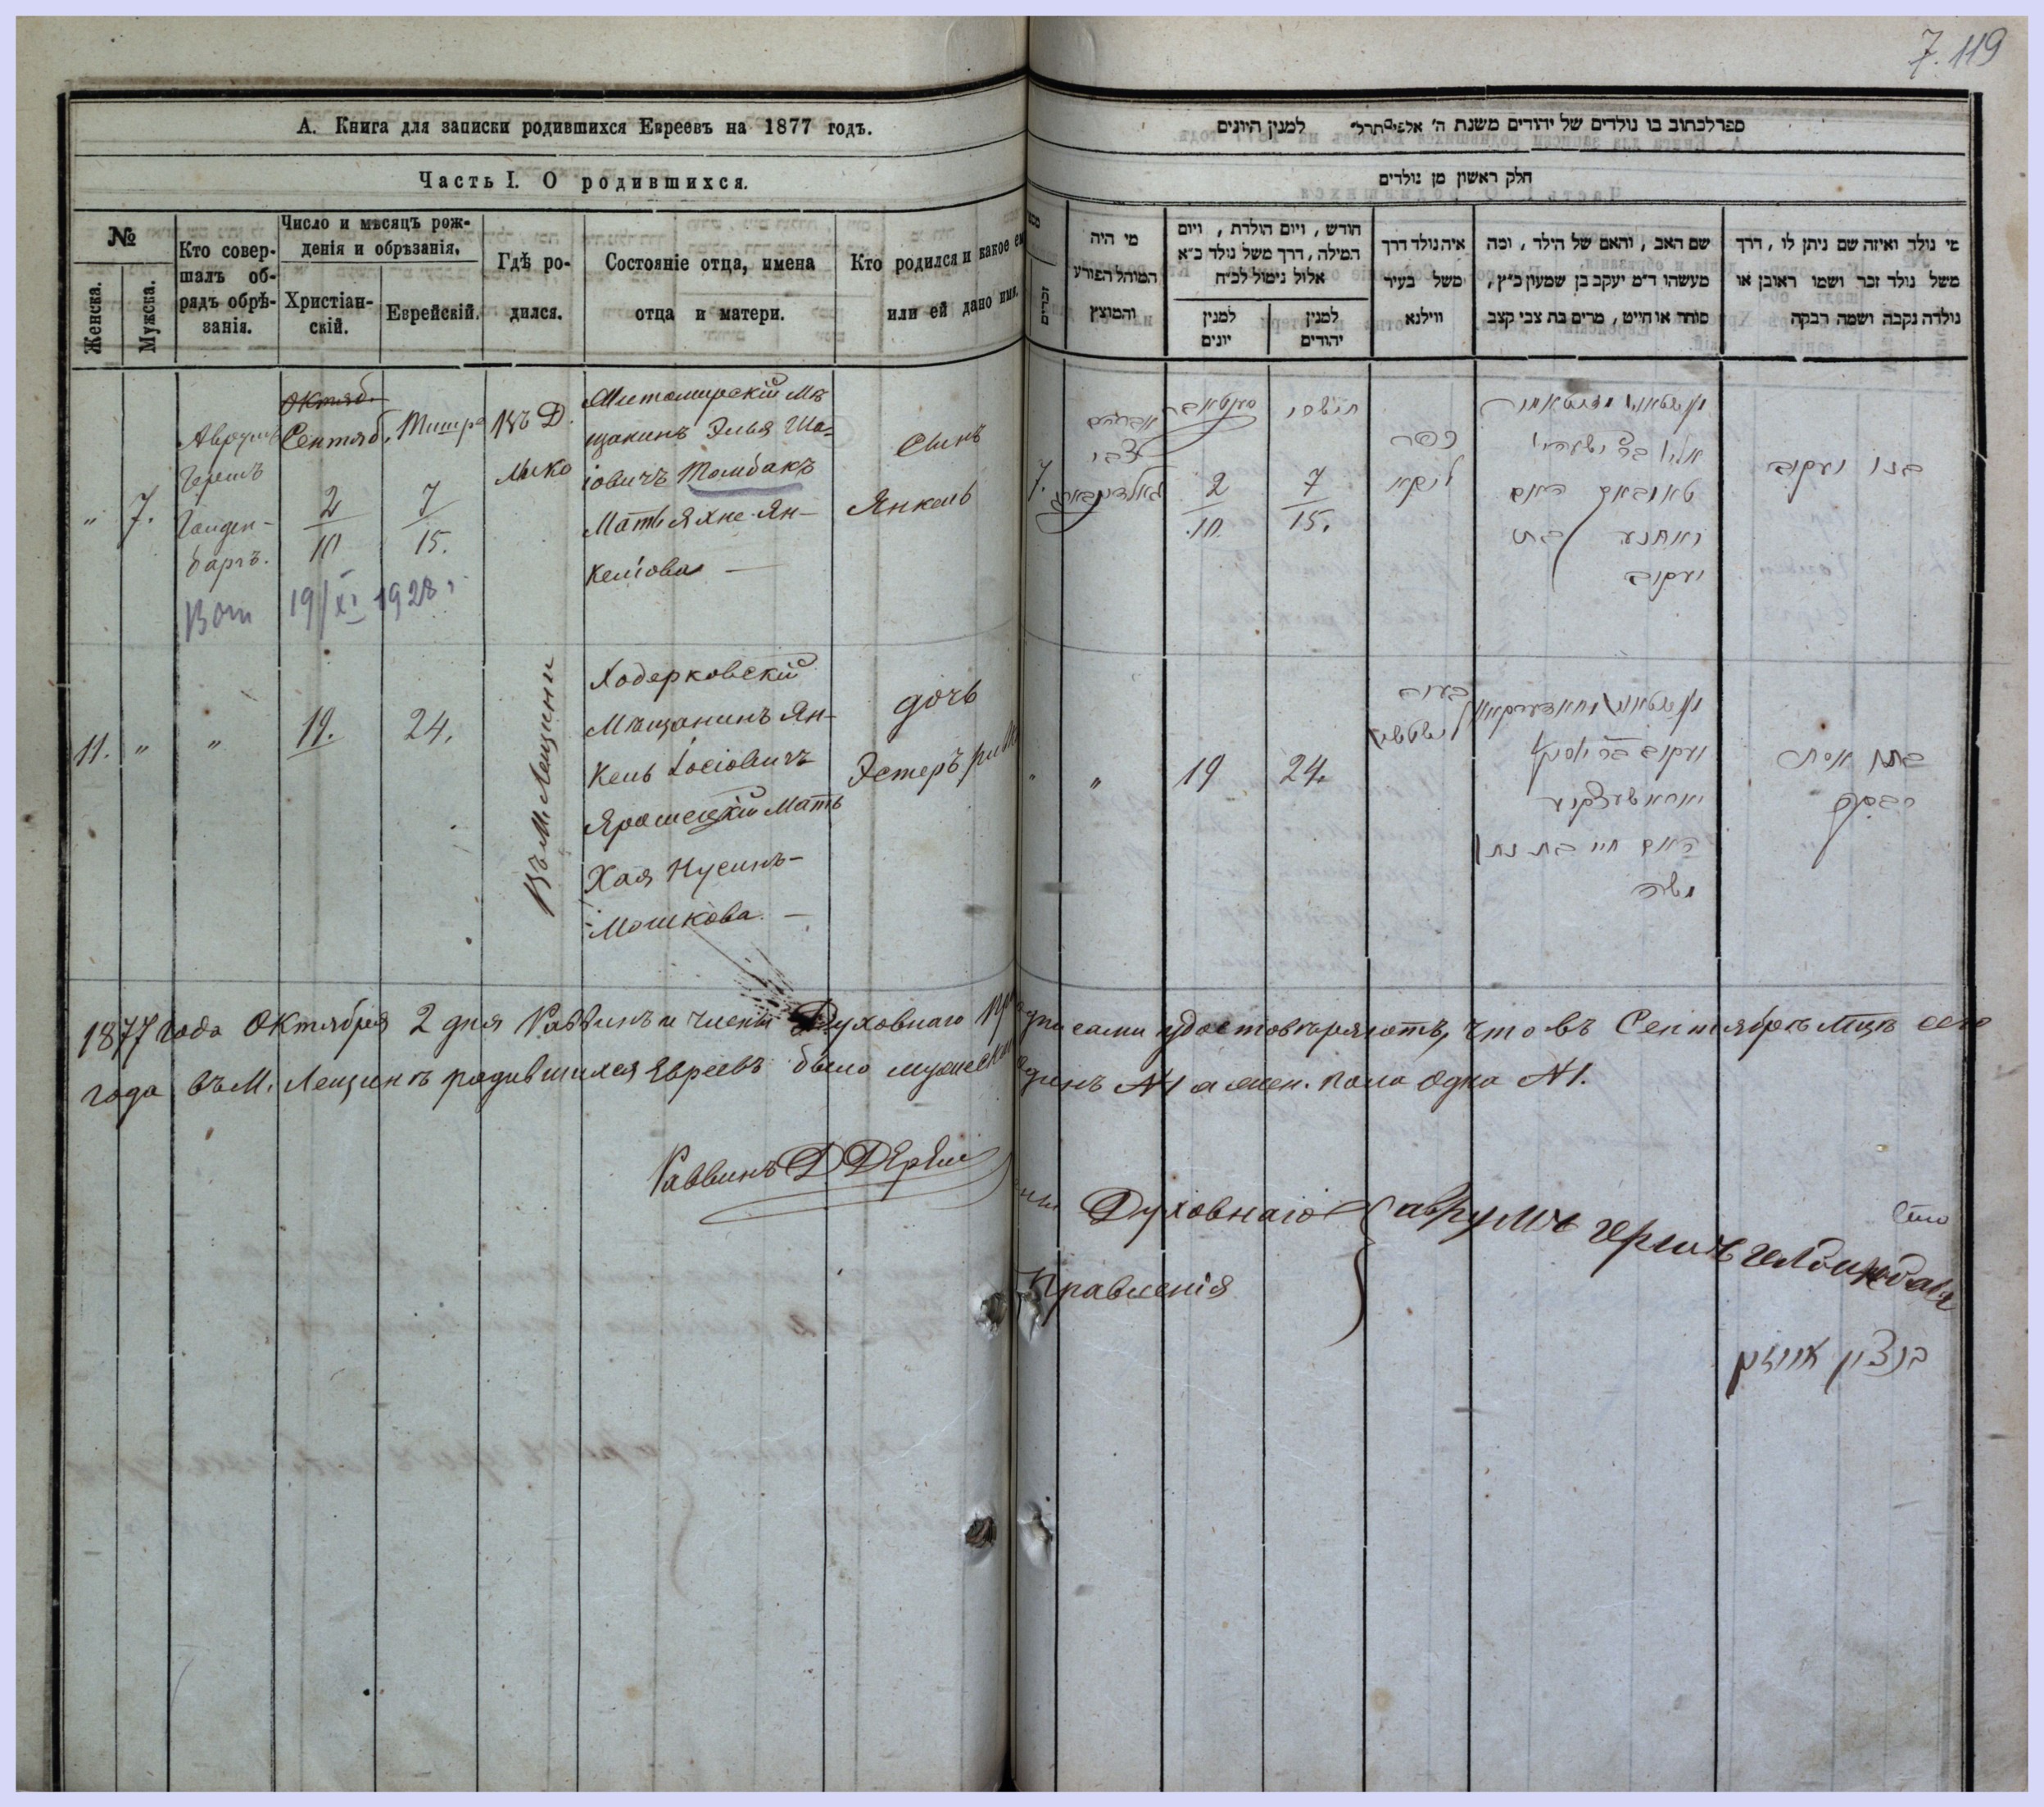 7. 119
А. Книга для записки родившихся Евреевъ на 1877 годъ.
Часть I. О родившихся.
№
Женска.
Мужска.
Кто совер-
шалъ об-
рядъ обрѣ-
занія.
Число и мѣсяцъ рож-
денія и обрѣзанія.
Христіан-
скій.
Еврейскій.
Гдѣ ро-
дился.
Состояніе отца, имена
отца и матери.
Кто родился и какое ем
или ей дано имя.
"
7.
Аврумъ
Гершъ
Голден-
баргъ.
Октяб.
Сентяб.
2
10
Тишре
7
15.
Въ Д.
Лыко
Житомирскій Мѣ
щанинъ Элья Ша-
іовичъ Томбакъ
Мать Яхне Ян-
келіова —
Сынъ
Янкель
19/XI 1928 г
11.
"
"
19.
24.
Въ М. Лещини
Ходорковскій
Мѣщанинъ Ян-
кель Іосіовичъ
Ярошецкій Мать
Хая Нусинъ-
Мошкова. —
дочь
Эстеръ
ספר לכתוב בו נולדים של יהודים משנת ה' אלפים תרל" למנין היונים
חלק ראשון מן נולדים
זכרים
מי היה
המוהל הפורע
והמוצץ
חודש, ויום הולדת, ויום
המילה, דרך משל נולד כ"א
אלול נימול לכ"ח
למנין
יונים
למנין
יהודים
איה נולד דרך
משל בעיר
ווילנא
שם האב, והאם של הילד, ומה
מעשהו ד"מ יעקב בן שמעון כ"ץ,
סוחר או חייט, מרים בת צבי קצב
מי נולד ואיזה שם ניתן לו, דרך
משל נולד זכר ושמו ראובן או
נולדה נקבה ושמה רבקה
7.
אברהם
צבי
סעפטאבר
2
10.
תשרי
7
15.
כפר
אלי' בר ישעיהו
טאמבאק האם
יאחנע בת
יעקב
בנו יעקב
"
"
19
24.
יעקב בר יוסף
האם חיי בת נתן
משה
בתו אסתר
רבקה
1877 года Октября 2 дня Раввинъ и члены Духовнаго Пра
дписами удостовѣряютъ, что въ Сентябрѣ мцѣ сего
года въ М. Лещинѣ родившихся Евреевъ было мужеска
одинъ №1 а жен. пола одна №1.
Раввинъ Д
ны Духовнаго
Правленія
аврумъ гершъ
בנציון